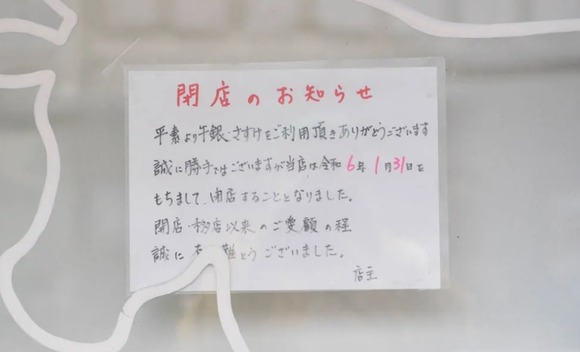 閉店のお知らせ
平素より牛銀、さすけをご利用頂きありがとうございます
誠に勝手ではございますが当店は令和6年1月31日を
もちまして、閉店することとなりました。
開店・移店以来のご愛顧の程
誠に 難とうございました。
店主